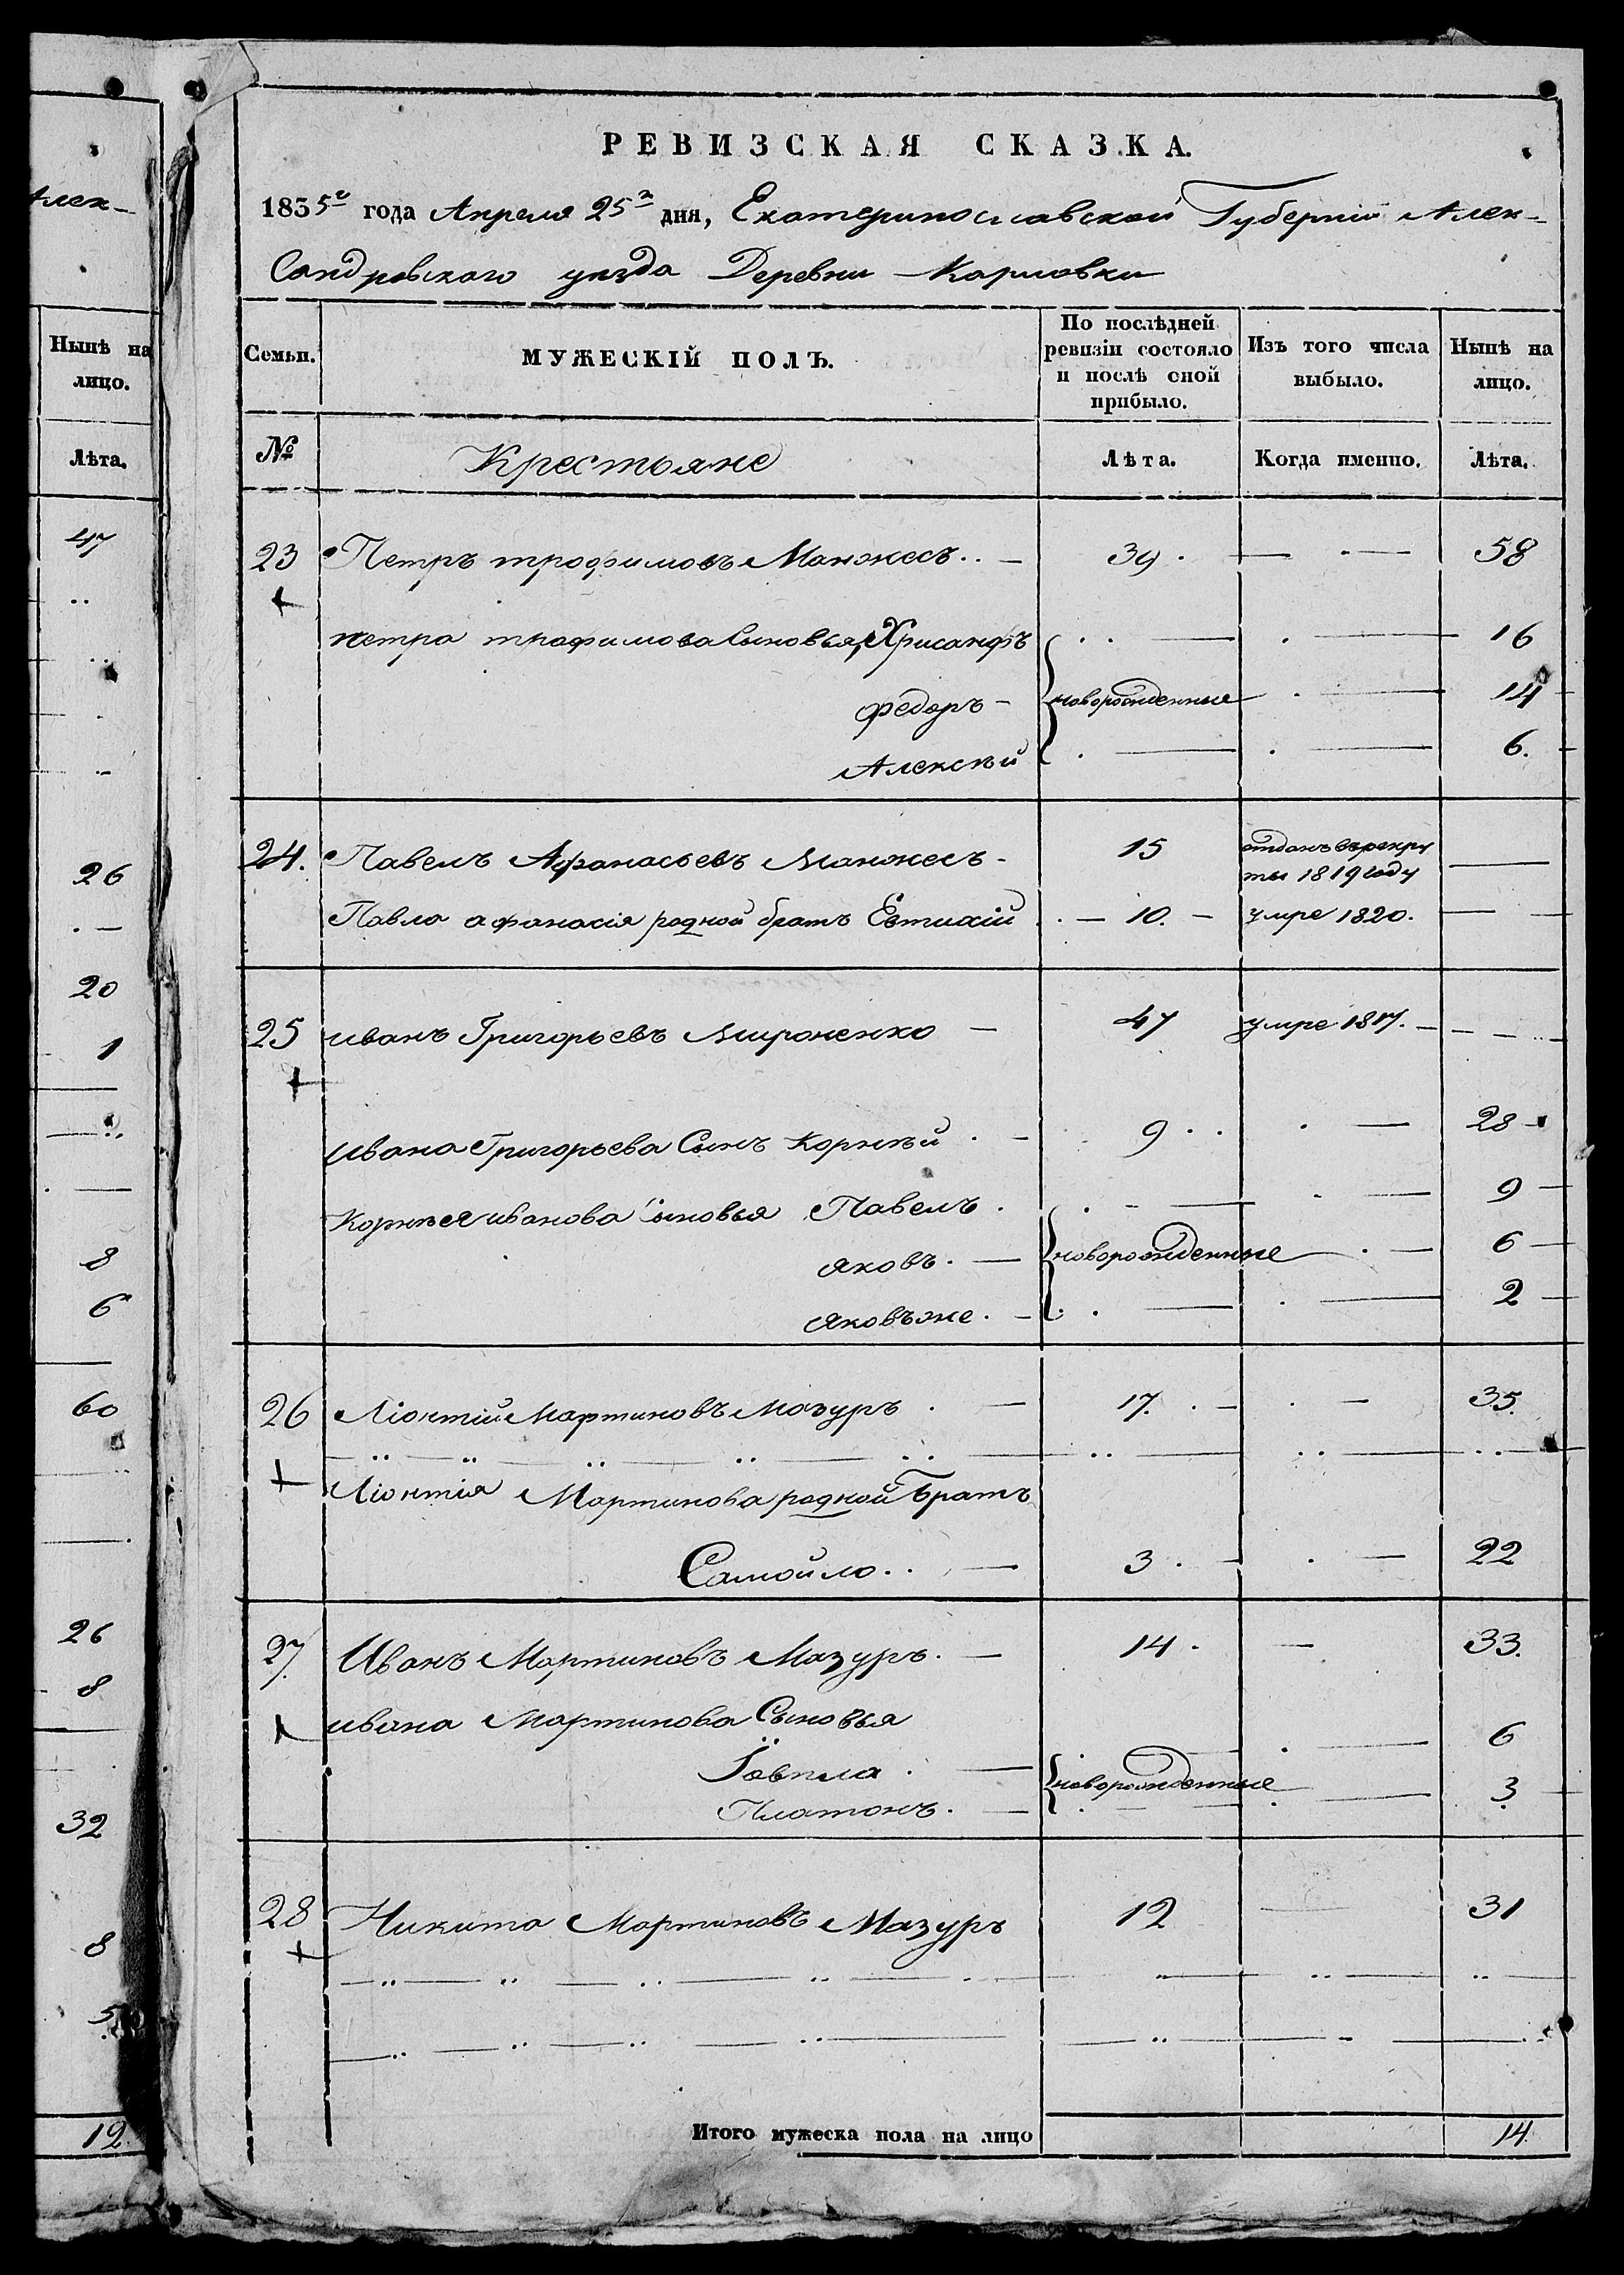 Алек-
Нынѣ на
лицо.
Лѣта.
47
26
20
1
8
6
60
26
8
32
8
5
12.
РЕВИЗСКАЯ СКАЗКА.
1835го года Апреля 25го дня, Екатеринославской Губерніи Алек-
Сандровского уезда Деревни Карловки
Семьи. МУЖЕСКІЙ ПОЛЪ. По послѣдней ревизіи состояло и послѣ оной прибыло. Изъ того числа выбыло. Нынѣ на лицо.
№ Крестьяне Лѣта. Когда именно. Лѣта.
23 Петръ трофимовъ Манжесъ 39 58
петра трофимова Сыновья, Хрисанфъ 16
федоръ новорожденные 14
Алексѣй 6.
24. Павелъ Афанасьевъ Манжесъ 15 отданъ врекру
ты 1819 году
Павла афанасія родной братъ Евтихій 10. умре 1820.
25 иванъ Григорьевъ Мироненко 47 умре 1817.
ивана Григорьева Сынъ Корнѣй 9 28
Корнѣя иванова Сыновья Павелъ 9
яковъ новорожденные 6
яковъже 2
26 Ліонтій Мартиновъ Мазуръ 17. 35.
Ліонтія Мартинова родной Братъ
Самойло 3 22
27. Иванъ Мартиновъ Мазуръ 14 33.
ивана Мартинова Сыновья 6
новорожденные
Платонъ 3
28 Никита Мартиновъ Мазуръ 12 31
Итого мужеска пола на лицо 14.